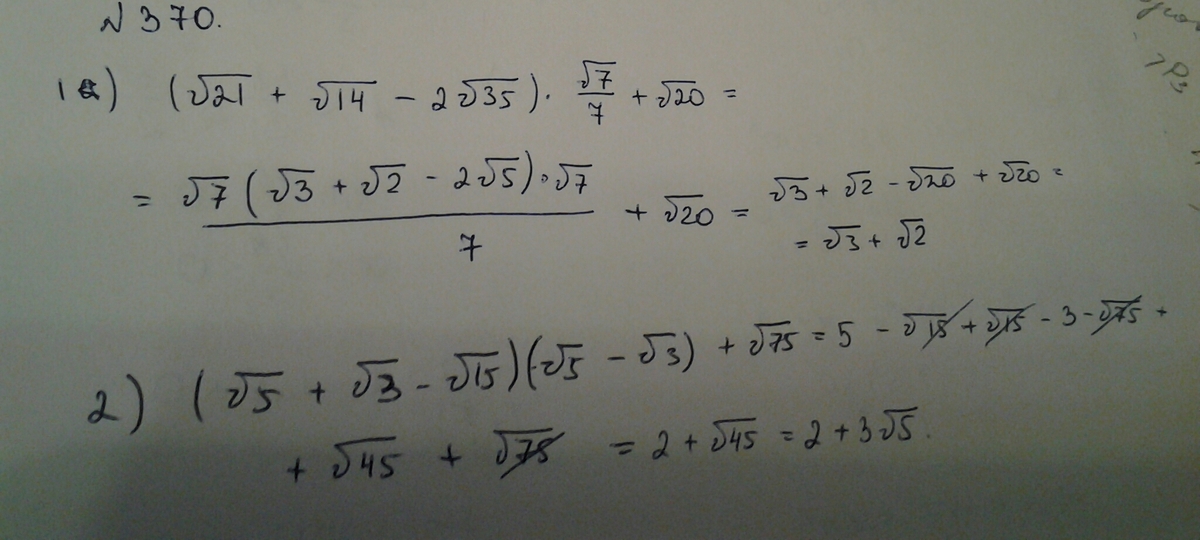 № 370.
1) (√21 + √14 − 2√35) · √7/7 + √20 =
= √7(√3 + √2 − 2√5) · √7 / 7 + √20 = √3 + √2 − √20 + √20 =
= √3 + √2
2) (√5 + √3 − √15)(√5 − √3) + √75 = 5 − √15 + √15 − 3 − √75 +
+ √45 + √75 = 2 + √45 = 2 + 3√5.